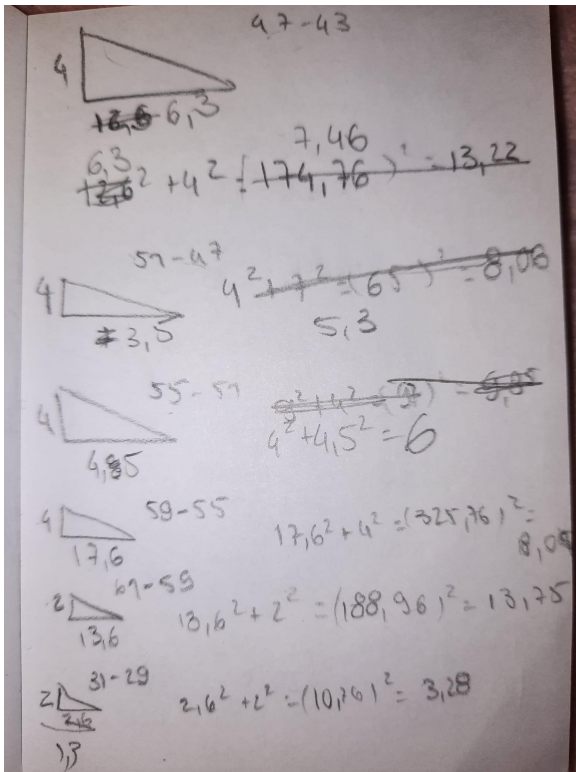 47-43
4
12,6 6,3
7,46
6,3
12,6² + 4² = (174,76)² = 13,22
51-47
4
3,5
4² + 7² = (65)² = 8,06
5,3
55-51
4
4,5
4² + 4,5² = 6
59-55
4
17,6
17,6² + 4² = (325,76)² =
8,05
61-59
2
13,6
13,6² + 2² = (188,96)² = 13,75
31-29
2
2,6
2,6² + 2² = (10,76)² = 3,28
1,3